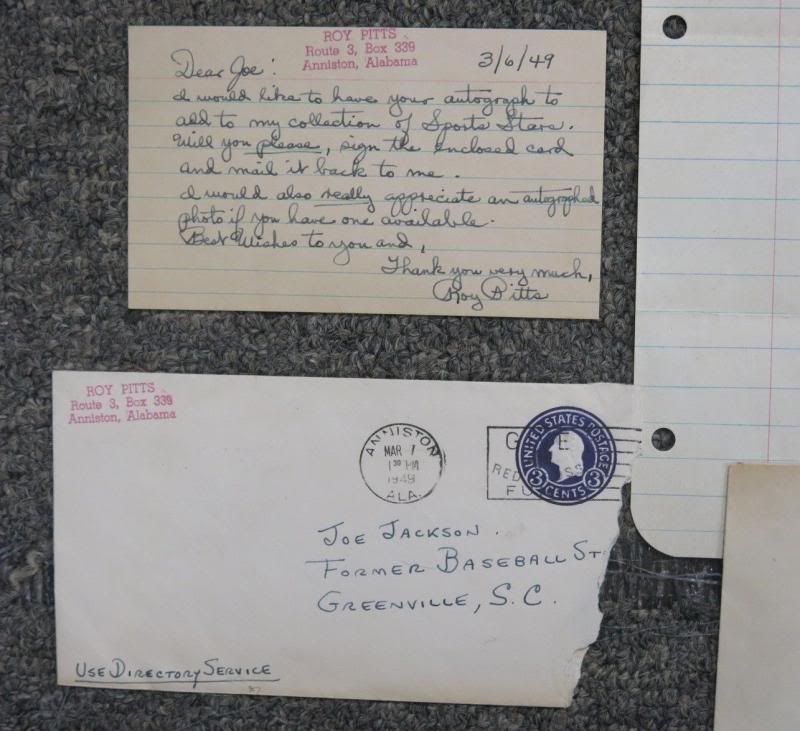 ROY PITTS
Route 3, Box 339
Anniston, Alabama
3/6/49
Dear Joe:
I would like to have your autograph to
add to my collection of Sports Stars.
Will you please, sign the enclosed card
and mail it back to me.
I would also really appreciate an autographed
photo if you have one available.
Best Wishes to you and,
Thank you very much,
Roy Pitts
ROY PITTS
Route 3, Box 339
Anniston, Alabama
ANNISTON
MAR 7
1 30 PM
1949
ALA.
UNITED STATES POSTAGE
3 CENTS 3
RED
FU
JOE JACKSON.
FORMER BASEBALL ST
GREENVILLE, S.C.
USE DIRECTORY SERVICE